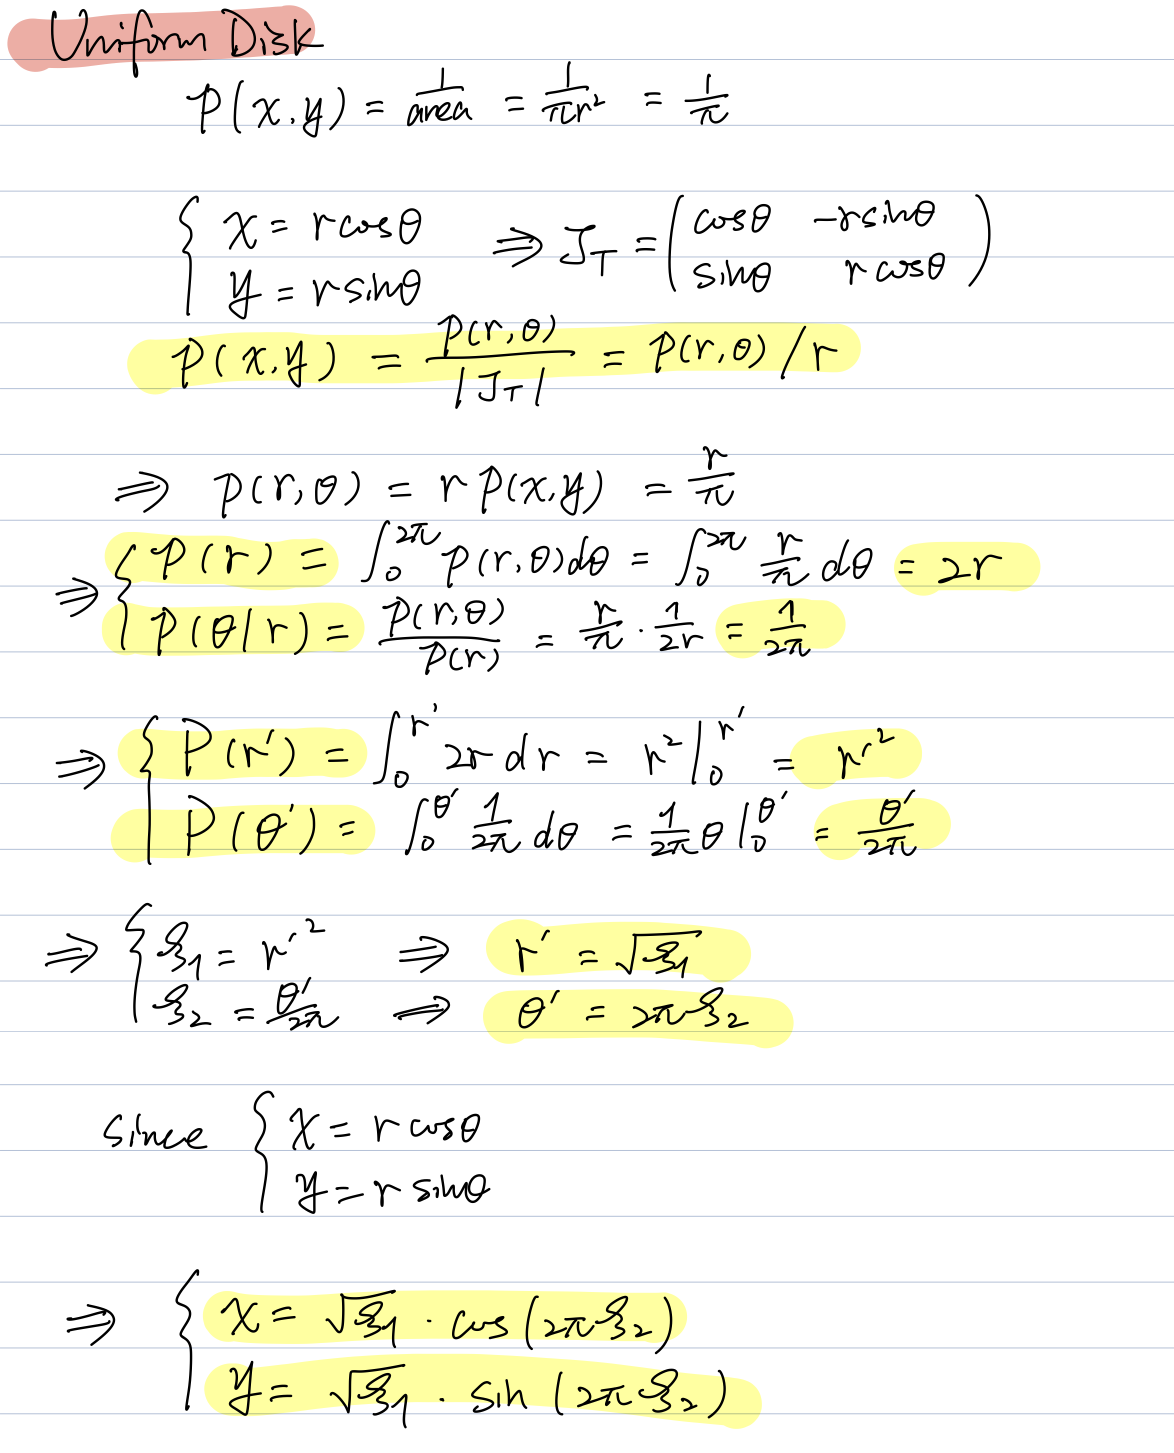 Uniform Disk
p(x,y) = 1/area = 1/πr² = 1/π
{ x = r cosθ ⇒ J_T = ( cosθ -r sinθ
y = r sinθ sinθ r cosθ )
p(x,y) = p(r,θ)/|J_T| = p(r,θ)/r
⇒ p(r,θ) = r p(x,y) = r/π
⇒ { p(r) = ∫₀^2π p(r,θ)dθ = ∫₀^2π r/π dθ = 2r
p(θ|r) = p(r,θ)/p(r) = r/π · 1/2r = 1/2π
⇒ { P(r′) = ∫₀^r′ 2r dr = r²|₀^r′ = r′²
P(θ′) = ∫₀^θ′ 1/2π dθ = 1/2π θ|₀^θ′ = θ′/2π
⇒ { ξ₁ = r′² ⇒ r′ = √ξ₁
ξ₂ = θ′/2π ⇒ θ′ = 2πξ₂
since { x = r cosθ
y = r sinθ
⇒ { x = √ξ₁ · cos(2πξ₂)
y = √ξ₁ · sin(2πξ₂)